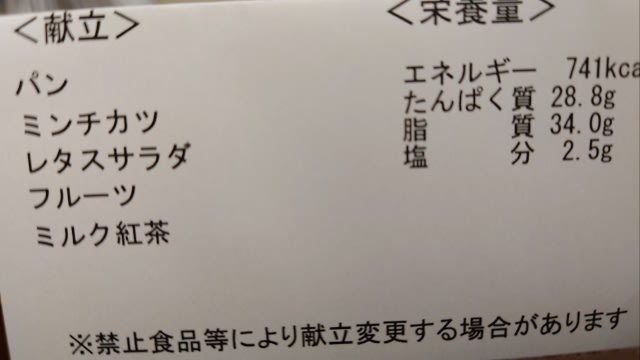 ＜献立＞
パン
ミンチカツ
レタスサラダ
フルーツ
ミルク紅茶
＜栄養量＞
エネルギー 741kca
たんぱく質 28.8g
脂 質 34.0g
塩 分 2.5g
※禁止食品等により献立変更する場合があります